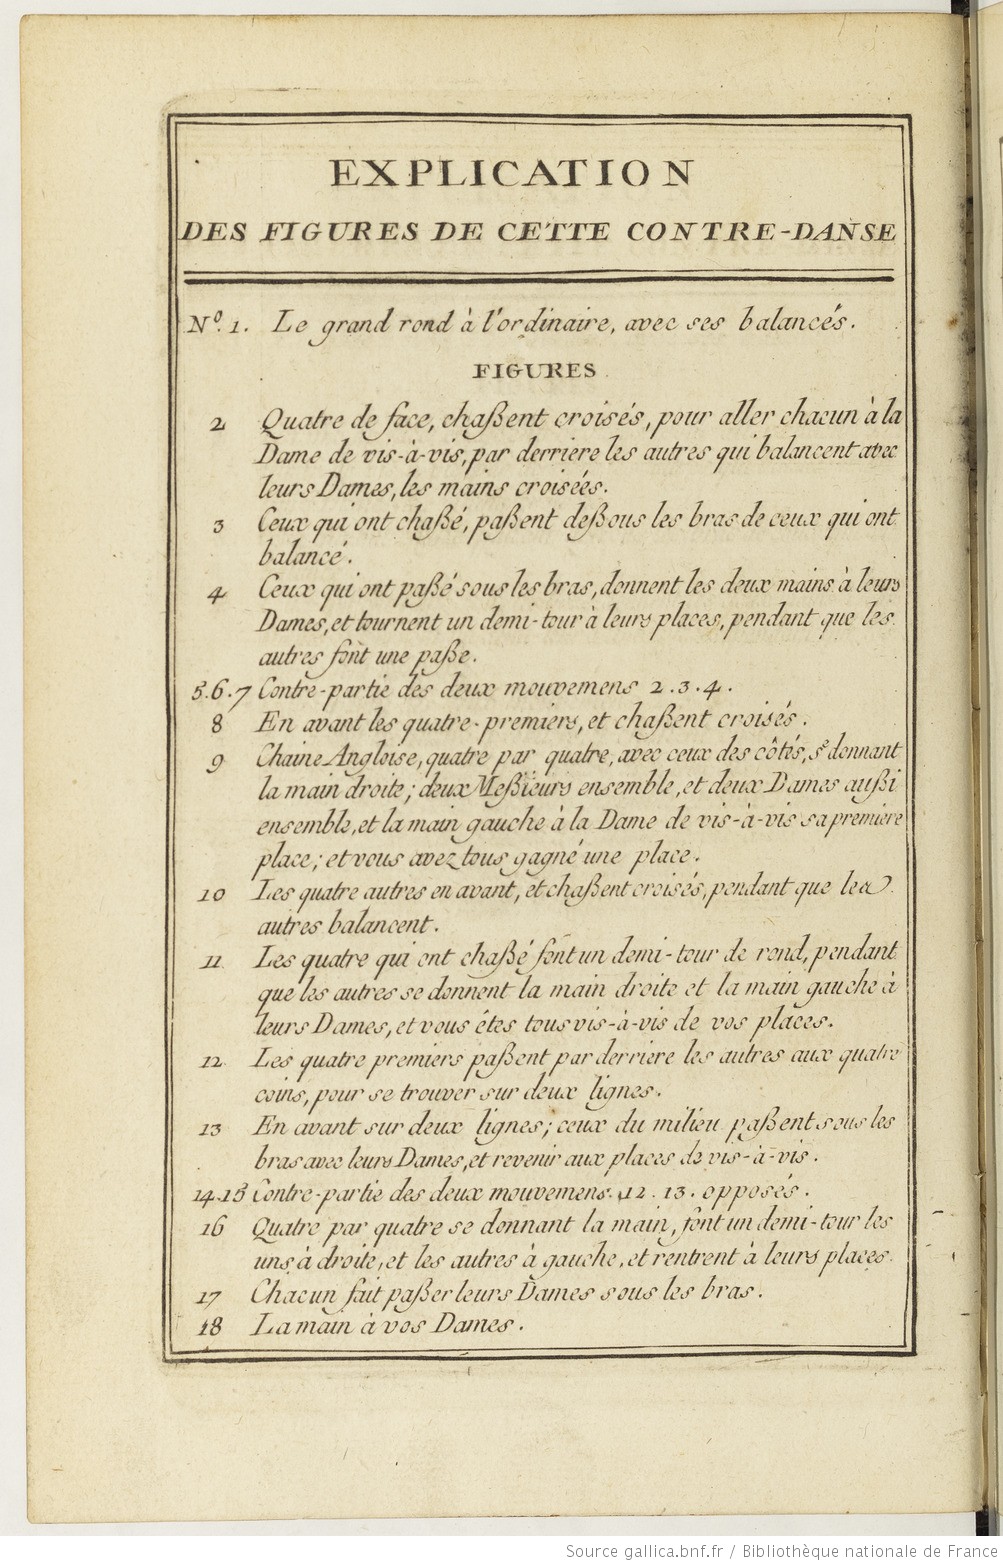 EXPLICATION
DES FIGURES DE CETTE CONTRE-DANSE
Nº. 1. Le grand rond à l'ordinaire, avec ses balancés.
FIGURES
2 Quatre de face, chaßent croisés, pour aller chacun à la
Dame de vis-à-vis, par derriere les autres qui balancent avec
leurs Dames, les mains croisées.
3 Ceux qui ont chaßé, paßent deßous les bras de ceux qui ont
balancé.
4 Ceux qui ont paßé sous les bras, donnent les deux mains à leurs
Dames, et tournent un demi-tour à leurs places, pendant que les
autres font une paße.
5.6.7 Contre-partie des deux mouvemens 2.3.4.
8 En avant les quatre-premiers, et chaßent croisés.
9 Chaine Angloise, quatre par quatre, avec ceux des côtés, se donnant
la main droite; deux Meßieurs ensemble, et deux Dames außi
ensemble, et la main gauche à la Dame de vis-à-vis sa premiere
place; et vous avez tous gagné une place.
10 Les quatre autres en avant, et chaßent croisés, pendant que les
autres balancent.
11 Les quatre qui ont chaßé font un demi-tour de rond, pendant
que les autres se donnent la main droite et la main gauche à
leurs Dames, et vous êtes tous vis-à-vis de vos places.
12 Les quatre premiers paßent par derriere les autres aux quatre
coins, pour se trouver sur deux lignes.
13 En avant sur deux lignes; ceux du milieu paßent sous les
bras avec leurs Dames, et revenir aux places de vis-à-vis.
14.15 Contre-partie des deux mouvemens. 12. 13. opposés.
16 Quatre par quatre se donnant la main, font un demi-tour les
uns à droite, et les autres à gauche, et rentrent à leurs places.
17 Chacun fait paßer leurs Dames sous les bras.
18 La main à vos Dames.
Source gallica.bnf.fr / Bibliothèque nationale de France